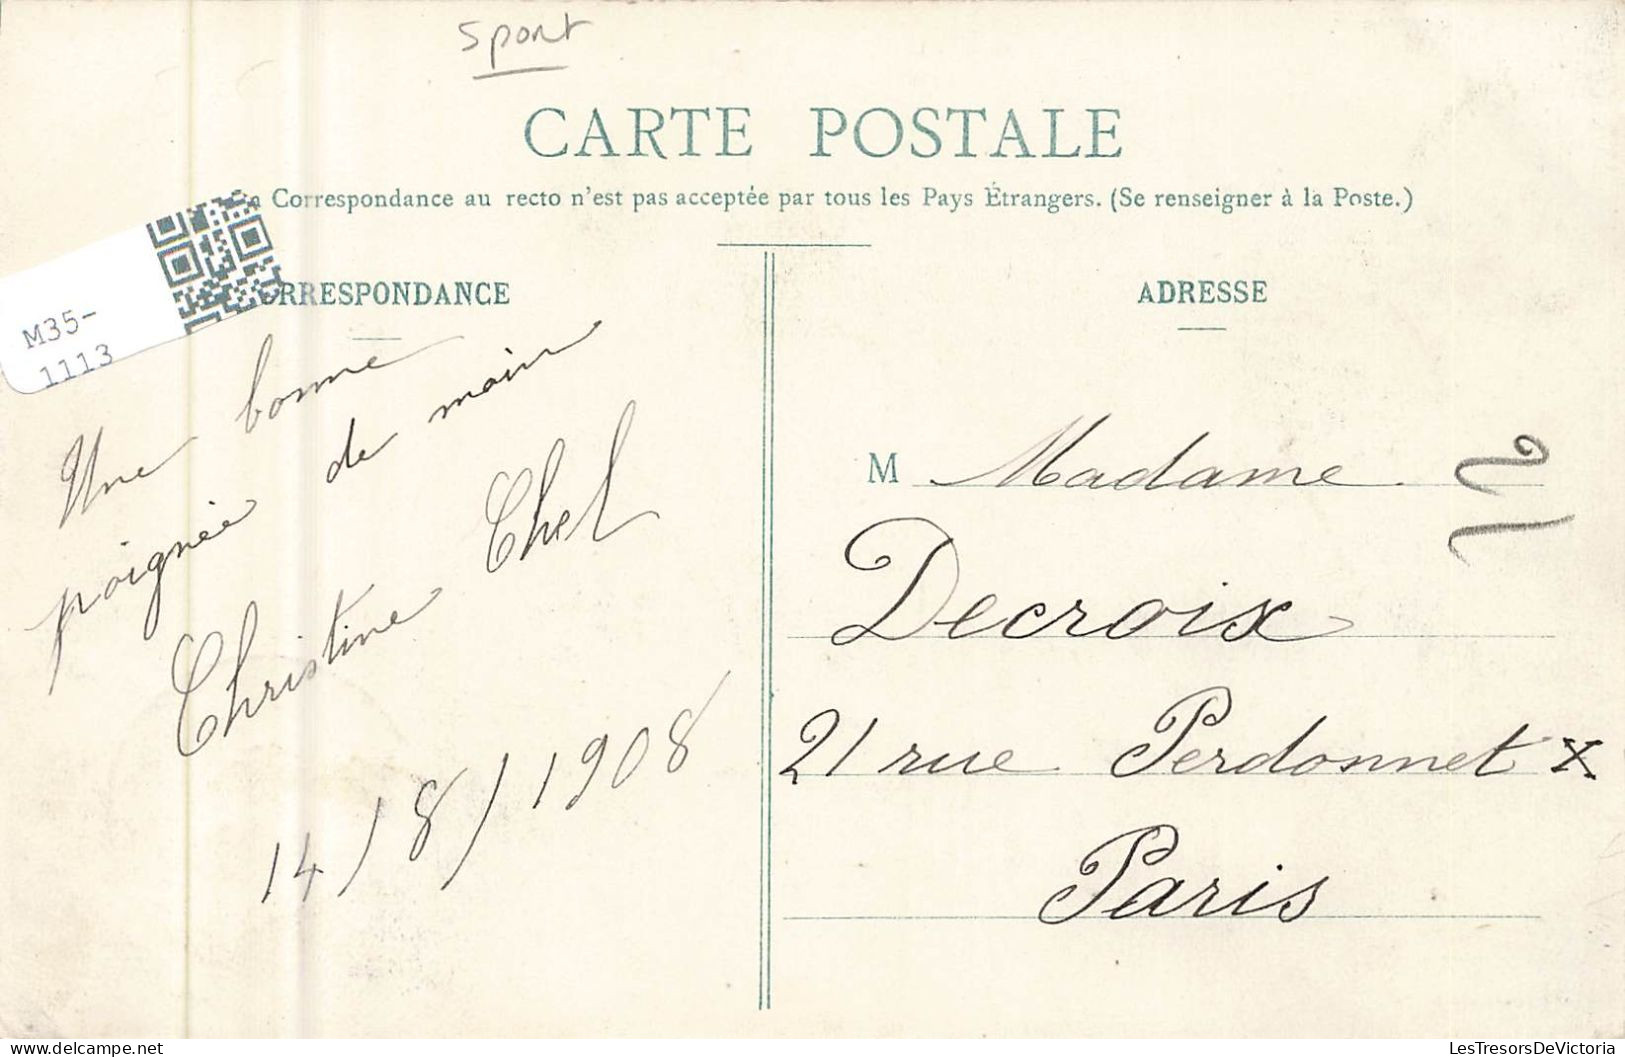 Sport
CARTE POSTALE
Correspondance au recto n'est pas acceptée par tous les Pays Étrangers. (Se renseigner à la Poste.)
RRESPONDANCE
ADRESSE
M35-
1113
Une bonne
poignée de main
Christine Chel
14/8/1908
M Madame
Decroix
21 rue Perdonnet X
Paris
LesTresorsDeVictoria
LesTresorsDeVictoria.com